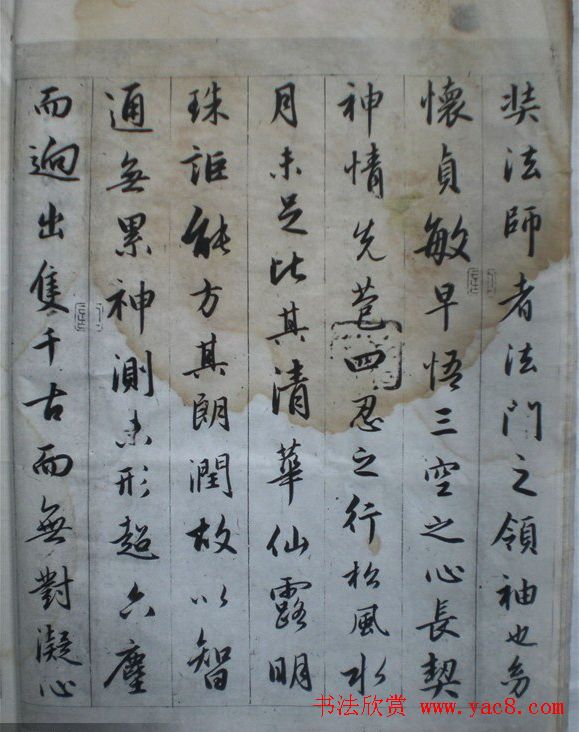 奘法師者法門之領袖也幼
懷貞敏早悟三空之心長契
神情先苞四忍之行松風水
月未足比其清華仙露明
珠詎能方其朗潤故以智
通無累神測未形超六塵
而迥出隻千古而無對凝心
书法欣赏 www.yac8.com